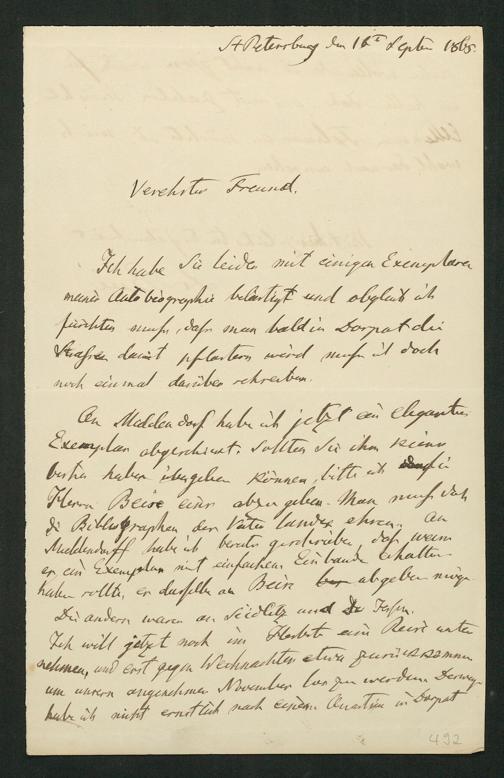 St Petersburg den 12ᵗ Septer 1865.
Verehrter Freund.
Ich habe Sie leider mit einigen Exemplaren
meiner Autobiographie belästigt und obgleich ich
fürchten muss, dass man bald in Dorpat die
Strassen damit pflastern wird muss ich doch
noch einmal darüber schreiben.
An Middendorf habe ich jetzt ein elegantes
Exemplar abgeschickt. Sollten Sie ihm keins
bestim haben übergeben können, bitte ich
Herrn Beise eins abzugeben. Man muss doch
die Bibliographen des Vaterlandes ehren. An
Middendorff habe ich bereits geschrieben, dass wenn
er ein Exemplar mit einfachem Einbande erhalten
haben sollte, er dasselbe an Beise abgeben möge.
Die andern waren an Seidlitz und
Ich will jetzt noch im Herbste eine Reise unter
nehmen, und erst gegen Weihnachten etwa zurückkommen
um unsern angenehmen November los zu werden. Deswegen
habe ich nicht ernstlich nach einem Quartier in Dorpat
492